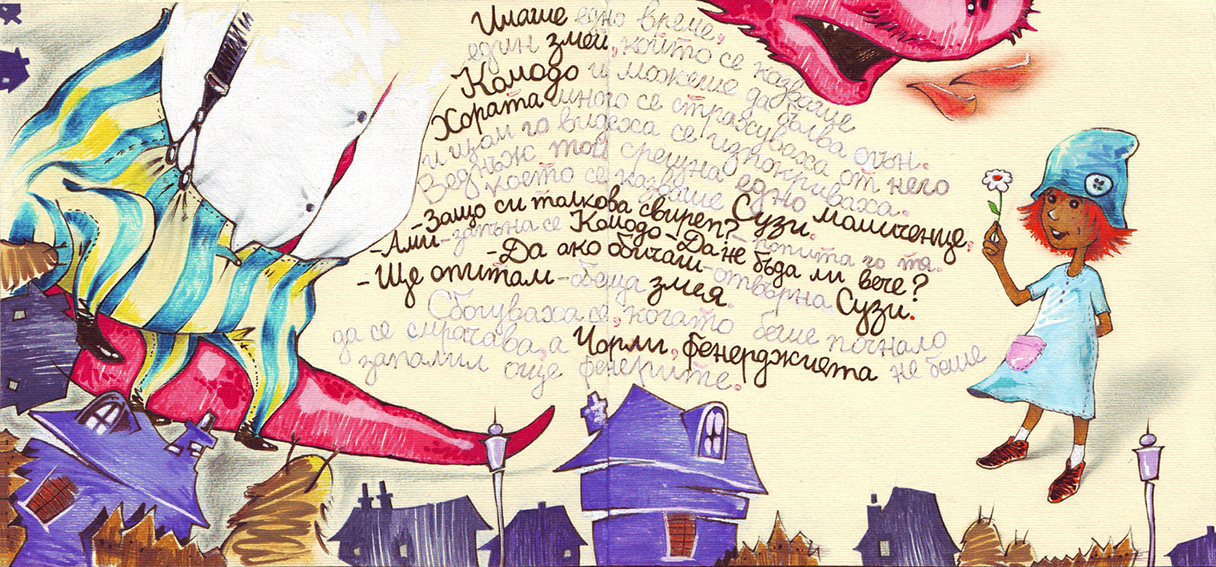 Имаше едно време,
един змей, който се казваше
Комодо и можеше да бълва огън.
Хората много се страхуваха от него
и щом го видеха се изпокриваха.
Веднъж той срещна едно момиченце,
което се казваше Сузи.
-Защо си толкова свиреп? - попита го тя.
-Ами - запъна се Комодо - Да не бъда ли вече?
-Да ако обичаш - отвърна Сузи.
-Ще опитам - обеща змея.
Сбогуваха се, когато беше почнало
да се смрачава, а Чарли, фенерджията не беше
запалил още фенерите.